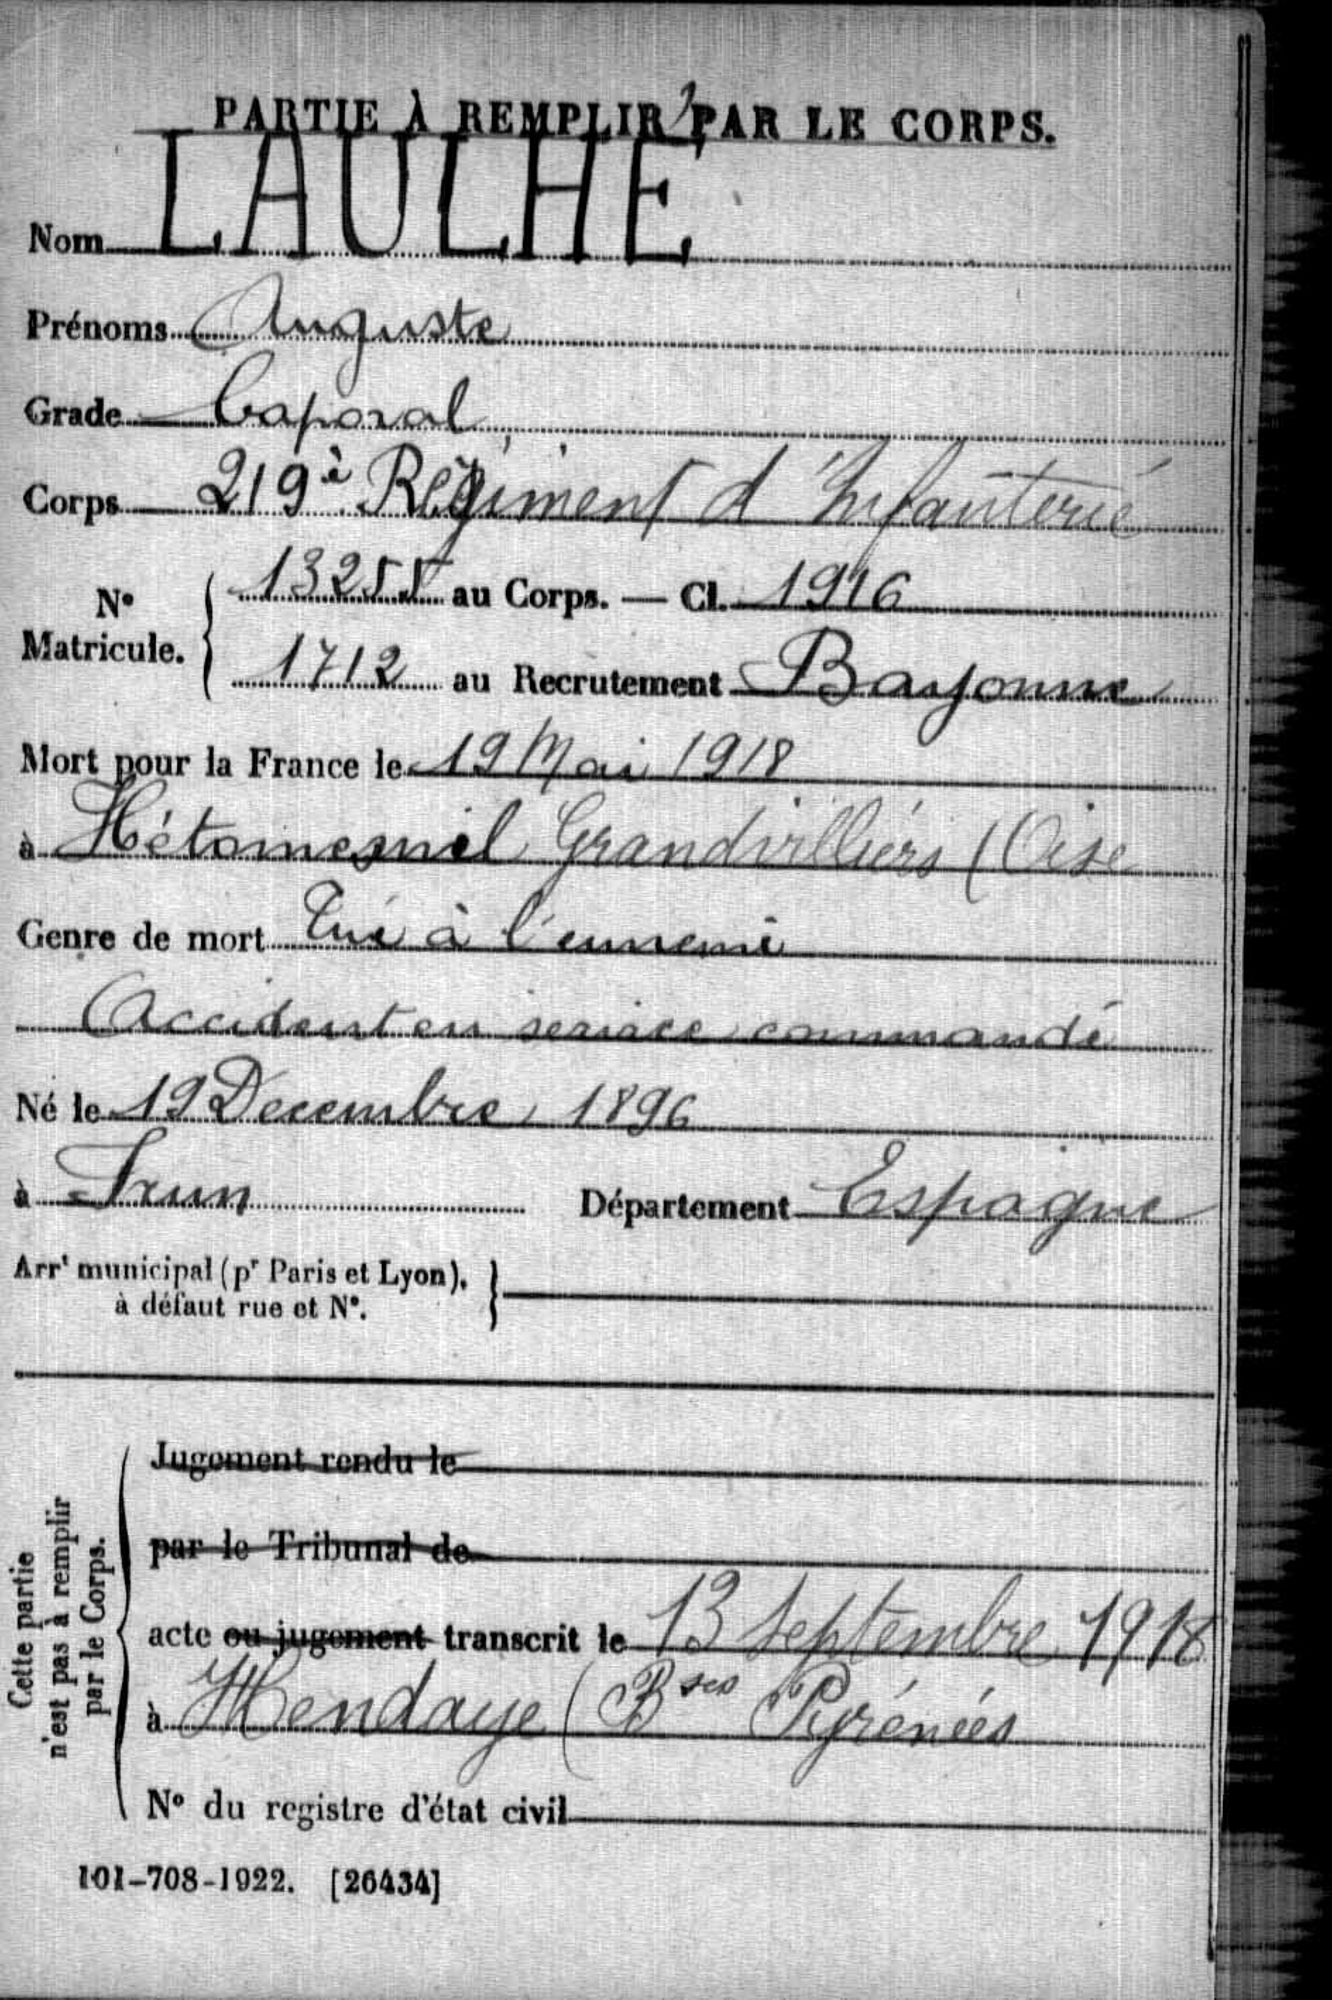 PARTIE À REMPLIR PAR LE CORPS.
Nom LAULHÉ
Prénoms Auguste
Grade Caporal
Corps 219è Régiment d'Infanterie
N° Matricule. 13255 au Corps. — Cl. 1916
1712 au Recrutement Bayonne
Mort pour la France le 19 Mai 1918
à Hétomesnil Grandvilliers (Oise
Genre de mort Tué à l'ennemi
Accident en service commandé
Né le 19 Decembre 1896
à Irun Département Espagne
Arrt municipal (pr Paris et Lyon),
à défaut rue et N°.
Cette partie
n'est pas à remplir
par le Corps.
Jugement rendu le
par le Tribunal de
acte ou jugement transcrit le 13 Septembre 1918
à Hendaye (Bses Pyrénées
N° du registre d'état civil
101-708-1922. [26434]